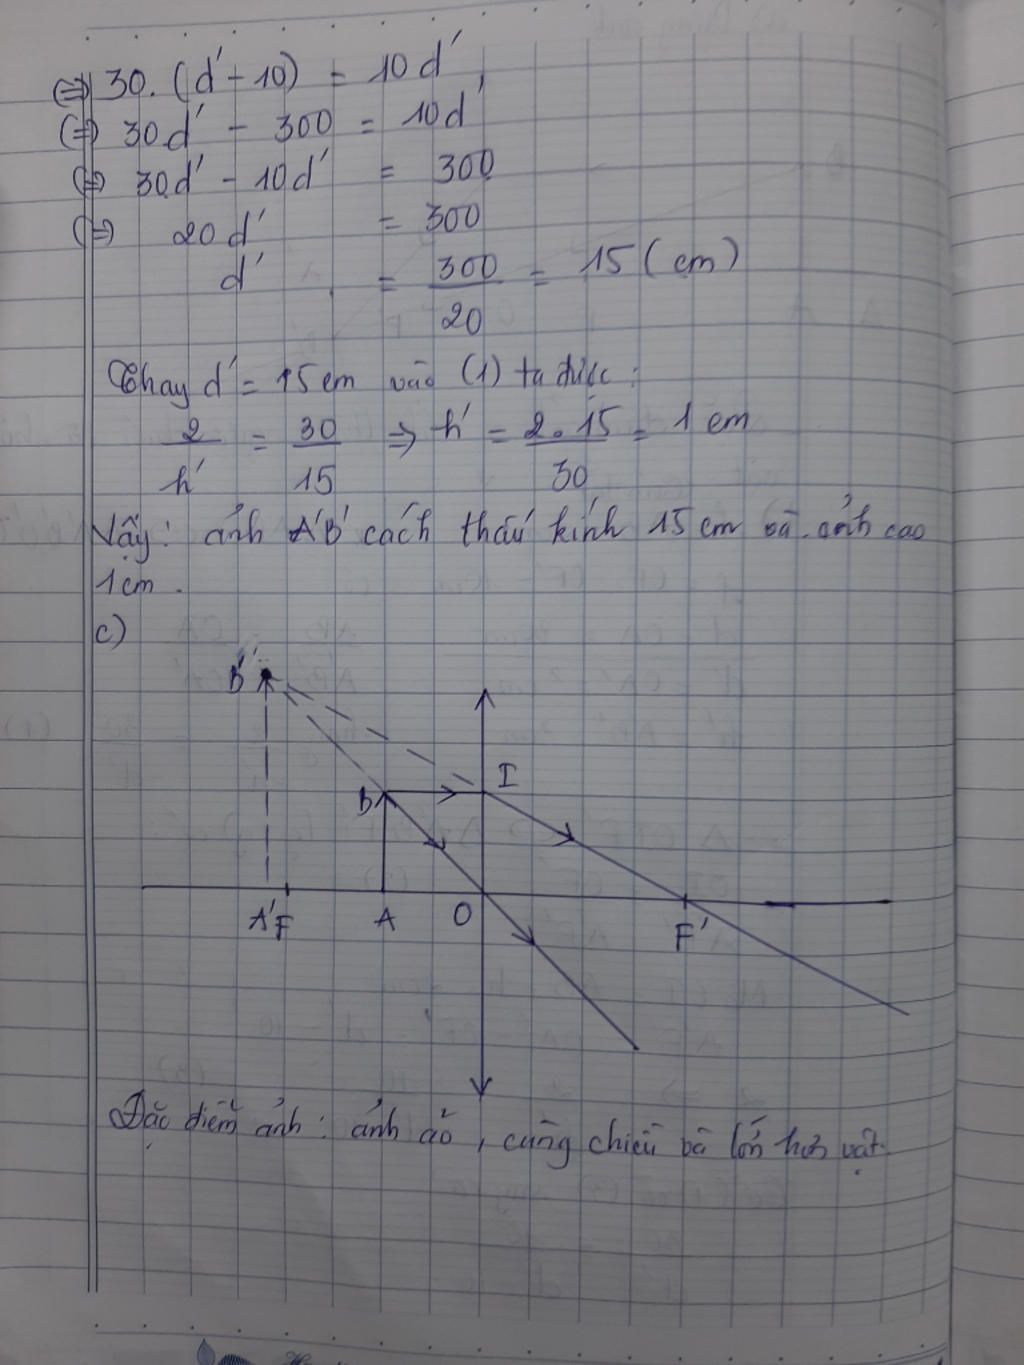 (=) 30. (d' - 10) = 10 d'
(=) 30d' - 300 = 10d'
(=) 30d' - 10d' = 300
(=) 20d' = 300
d' = 300/20 = 15 (cm)
Thay d' = 15cm vào (1) ta được:
2/h' = 30/15 => h' = 2.15/30 = 1 cm
Vậy: ảnh A'B' cách thấu kính 15 cm và ảnh cao
1cm.
c)
B'
I
B
A' F A O F'
Đặc điểm ảnh: ảnh ảo, cùng chiều và lớn hơn vật.